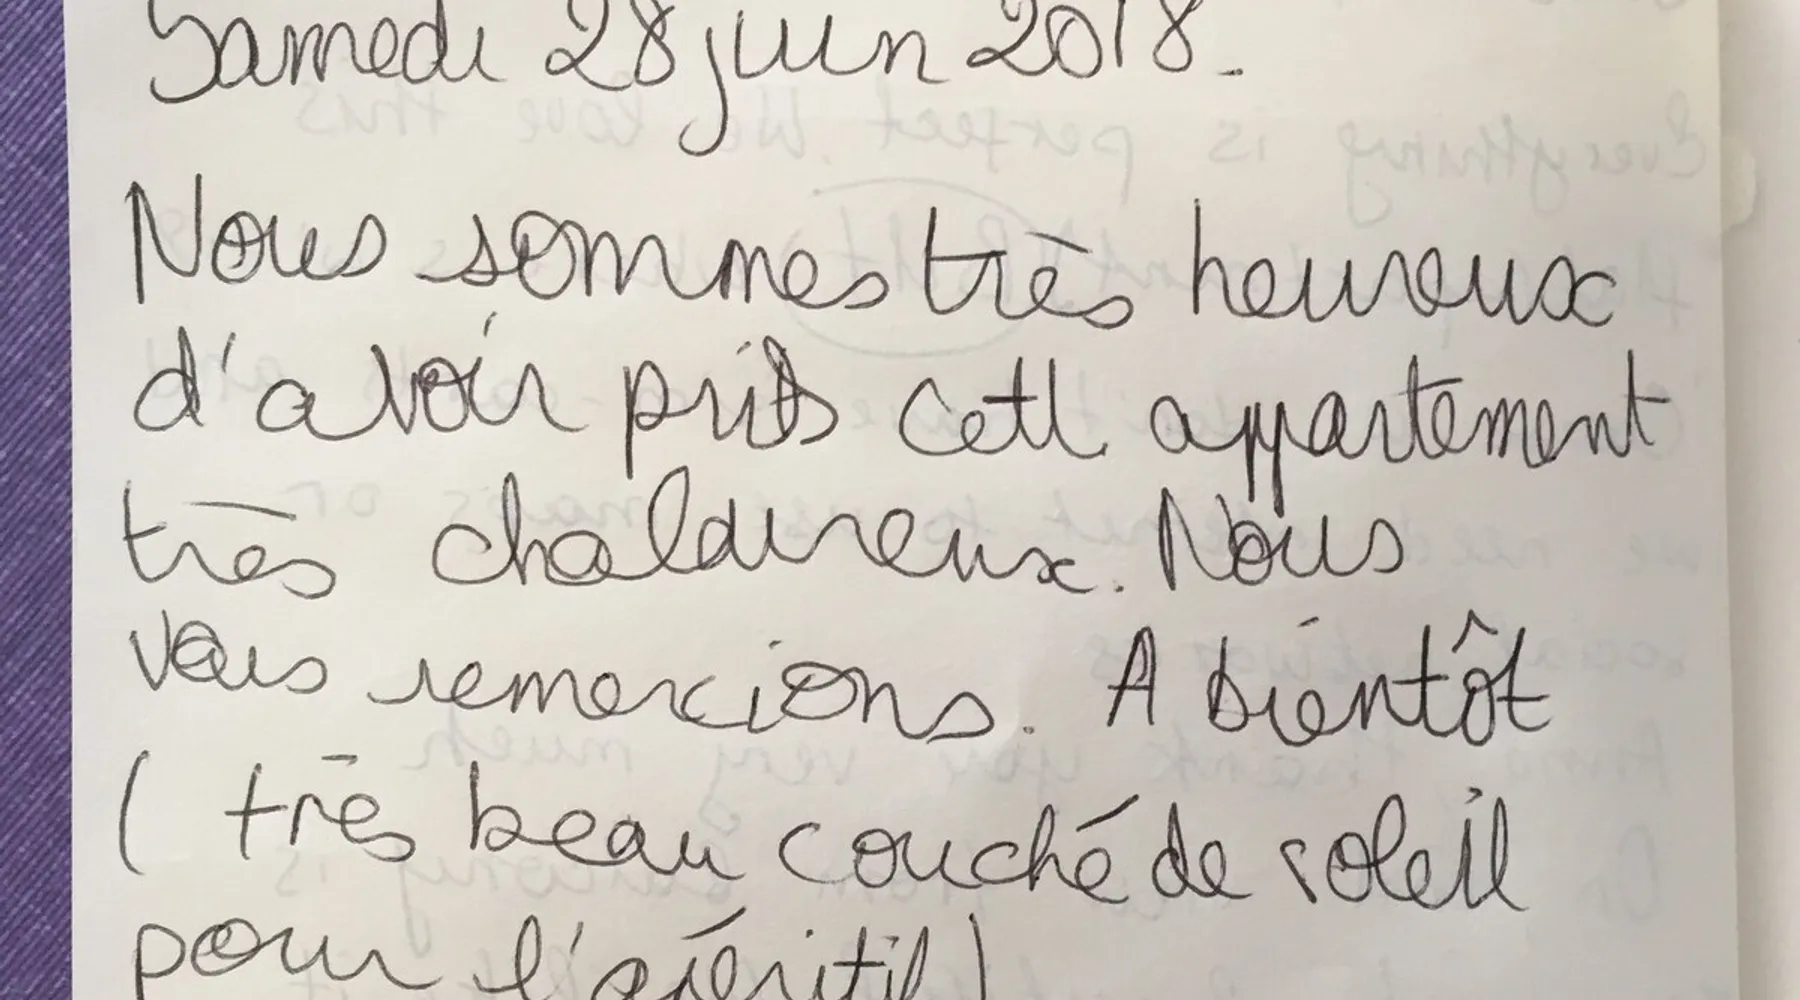 Samedi 28 juin 2018.
Nous sommes très heureux
d'avoir pris cett appartement
très chaldureux. Nous
vous remercions. A bientôt
( très beau couché de soleil
pour l'apéritif)